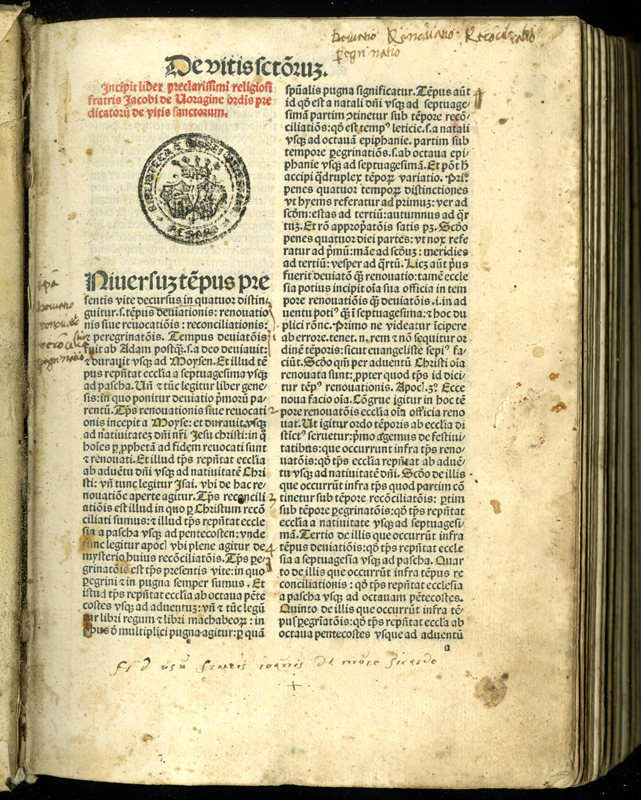 De vitis sctõruz.
Incipit liber preclarissimi religiosi
fratris Jacobi de Voragine ordis pre
dicatorũ de vitis sanctorum.
Niuersuz tẽpus pre
sentis vite decursus in quatuor distin
guitur.s.tẽpus deuiationis: renouatio
nis siue reuocatiõis: reconciliationis:
⁊ peregrinatõis. Tempus deuiatõis
fuit ab Adam postq̃.s.a deo deuiauit:
⁊ durauit vsq; ad Moysen. Et illud tẽ
pus repñtat ecclia a septuagesima vsq;
ad pascha. Uñ ⁊ tũc legitur liber gene
sis: in quo ponitur deuiatio p̃morũ pa
rentũ. Tp̃s renouationis siue reuocati
onis incepit a Moyse: et durauit vsq;
ad natiuitatez dñi nr̃i Jesu christi: in q̃
hoies ꝑ ꝓphetã ad fidem reuocati sunt
⁊ renouati. Et illud tp̃s repñtat ecclia
ab aduẽtu dñi vsq; ad natiuitatẽ Chri
sti: vñ tunc legitur Isai. vbi de hac re
nouatiõe aperte agitur. Tp̃s reconcili
atiõis est illud in quo ꝑ Christum recõ
ciliati sumus: ⁊ illud tp̃s repñtat eccle
sia a pascha vsq; ad pentecosten: vnde
tunc legitur apocl̃ vbi plene agitur de
mysterio huius recõciliatõis. Tp̃s pe
grinatõis est tp̃s presentis vite: in quo
ꝑegrini ⁊ in pugna semper sumus. Et
istud tp̃s repñtat ecclesia ab octaua pẽte
costes vsq; ad aduentuz: vñ ⁊ tũc legũ
tur libri regum ⁊ libri machabeoꝝ: in
quibus õ multiplici pugna agitur: ꝑ quã
spũalis pugna significatur. Tẽpus aũt
id qõ est a natali dñi vsq; ad septuage-
simã partim ↄtinetur sub tẽpore recõ
ciliatiõs: qõ est temp⁹ leticie.s.a natali
vsq; ad octauã epiphanie. partim sub
tempore ꝑegrinatiõis.s.ab octaua epi-
phanie vsq; ad septuagesimã. Et põt h̃
accipi q̃druplex tẽpoꝝ variatio. Pri:
penes quatuor tempoꝝ distinctiones
vt hyems referatur ad primuz: ver ad
scõm: estas ad tertiũ: autumnus ad q̃r
tuz. Et rõ appropatõis satis pz. Scõo
penes quatuor diei partes: vt nox refe
ratur ad p̃mũ: mãe ad scõuz: meridies
ad tertiũ: vesper ad q̃rtũ. Licz aũt p̃us
fuerit deuiatõ q̃ renouatio: tamẽ eccle
sia potius incipit oĩa sua officia in tem
pore renouatiõis q̃ deuiatiõis.i.in ad
uentu poti⁹ q̃ ĩ septuagesima: ⁊ hoc du
plici rõne. Primo ne videatur ĩcipere
ab errore. tenet.n.rem ⁊ nõ sequitur or
dinẽ tẽporis: sicut euangeliste sepi⁹ fa
ciũt. Scõo qm̃ per aduentũ Christi oĩa
renouata sunt: ꝓpter quod tp̃s id dici
tur tẽp⁹ renouationis. Apocl̃.3⁹. Ecce
noua facio oĩa. Cõgrue igitur in hoc tẽ
pore renouatõis ecclia oĩa officia reno
uat. Ut igitur ordo tẽporis ab ecclia di
stict⁹ seruetur: p̃mo agemus de festiui-
tatibus: que occurrunt infra tp̃s reno-
uatiõis: qõ tp̃s repñtat ecclia ab aduẽ-
tu vsq; ad natiuitatẽ dñi. Scõo de illis
que occurrũt infra tp̃s quod partim cõ
tinetur sub tẽpore recõciliatõis: ꝑtim
sub tẽpore ꝑegrinatiõis: qõ tp̃s repñtat
ecclia a natiuitate vsq; ad septuagesi-
mã. Tertio de illis que occurrũt infra
tẽpus deuiatiõis: qõ tp̃s repñtat eccle
sia a septuagesia vsq; ad pascha. Quar
to de illis que occurrũt infra tẽpus re
conciliationis: qõ tp̃s repñtat ecclesia
a pascha vsq; ad octauam pẽtecostes.
Quinto de illis que occurrũt infra tẽ-
pus ꝑegrinatõis: qõ tp̃s repñtat ecclia ab
octaua pentecostes vsque ad aduentũ
a